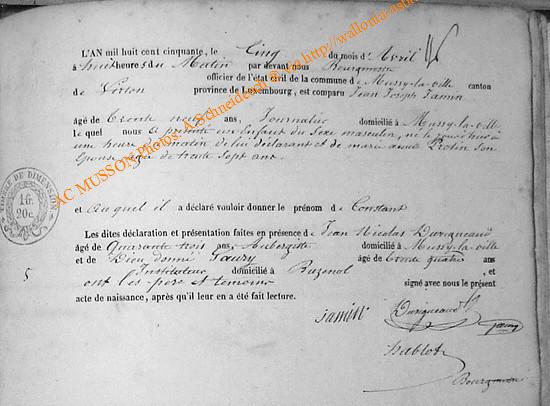 L'AN mil huit cent cinquante, le Cinq du mois d'Avril
à huit heures du Matin par devant nous Bourgmestre
officier de l'état civil de la commune de Mussy-la-ville canton
de Virton province de Luxembourg, est comparu Jean Joseph Jamin
âgé de trente neuf ans, Journalier domicilié à Mussy-la-ville
lequel nous a présenté un Enfant du Sexe masculin, né le jour d'hui à
une heure du matin de lui déclarant et de marie anne Protin son
Epouse agée de trente Sept ans
et auquel il a déclaré vouloir donner le prénom de Constant
Les dites déclaration et présentation faites en présence de Jean Nicolas
âgé de Quarante trois ans, Aubergiste domicilié à Mussy-la-ville
et de Dieu donné âgé de trente quatre ans
5 Instituteur domicilié à Buzenol et
ont les père et temoins signé avec nous le présent
acte de naissance, après qu'il leur en a été fait lecture.
Jamin
Bourgmestre
TIMBRE DE DIMENSION
1 fr.
20c
AC MUSSON Photos: A.Schneiderch © via http://wallonia-asbl